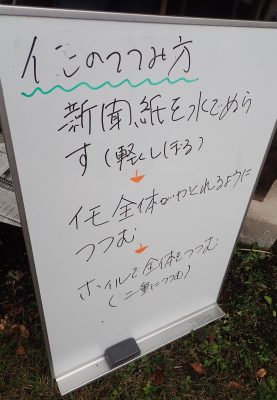 イモのつつみ方
新聞紙を水でぬら
す(軽くしぼる)
イモ全体がかくれるように
つつむ
ホイルで全体をつつむ
(二重につつむ)